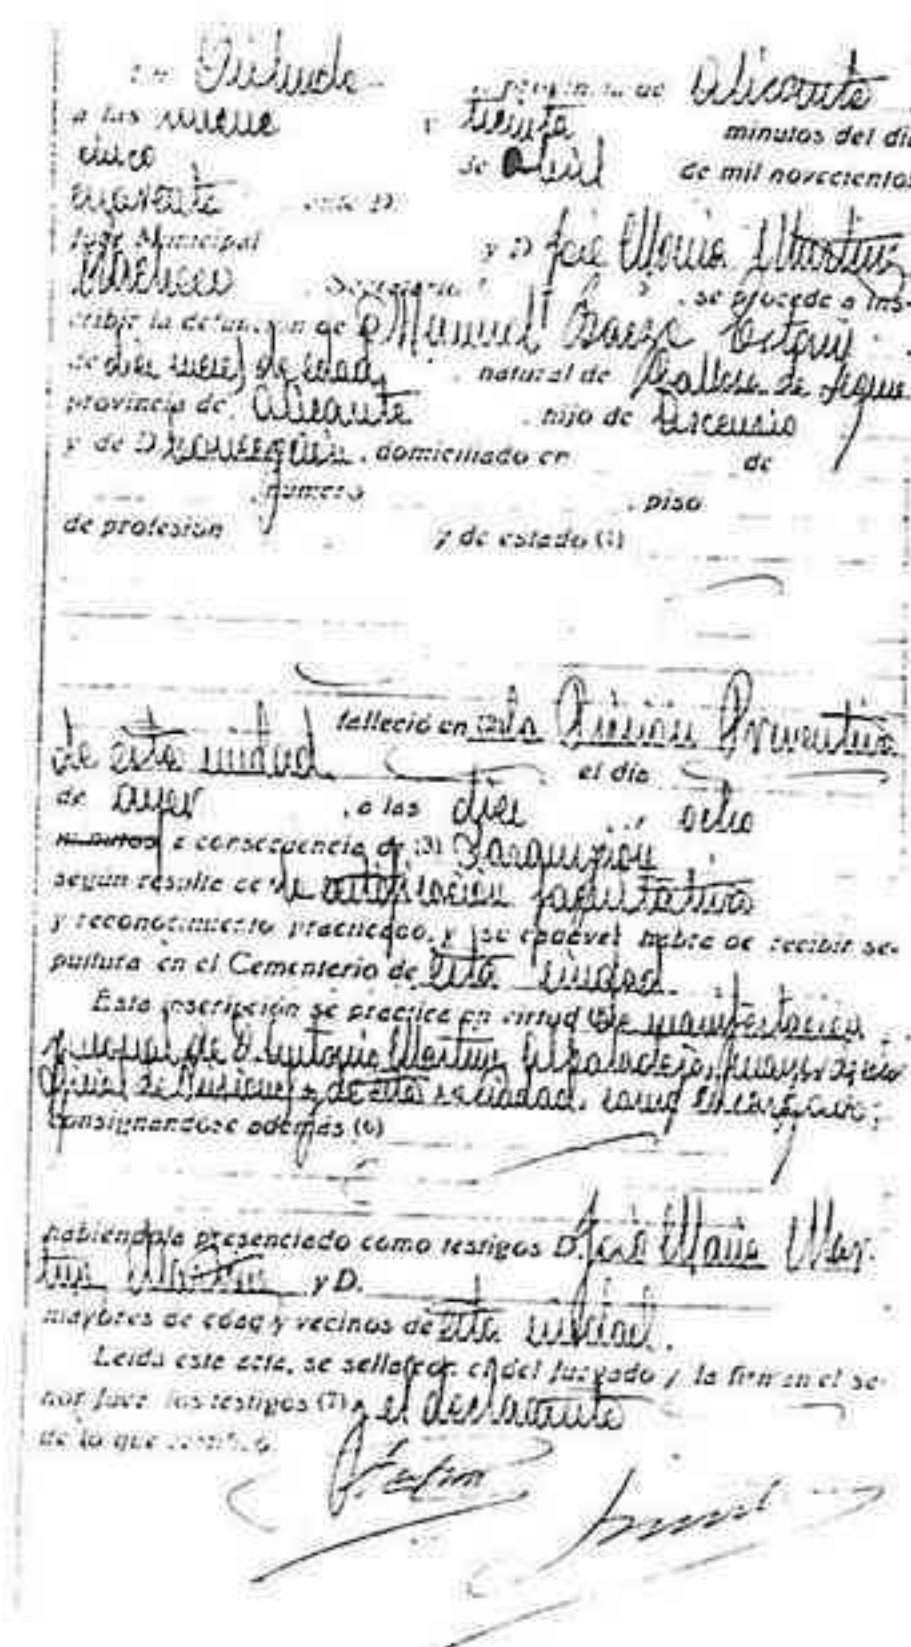 En Orihuela provincia de Alicante
a las nueve y treinta minutos del día
cinco de Abril de mil novecientos
cuarenta ante D.
Juez Municipal y D José María Martinez
Pacheco, Secretario, se procede a ins-
cribir la defunción de D Manuel
de diez meses de edad, natural de Callosa de Segura
provincia de Alicante, hijo de Ascensio
y de D Concepción, domiciliado en de
número, piso
de profesión y de estado (1)
falleció en (2) la Prisión Preventiva
de esta ciudad. el día
de ayer, a las diez y ocho
minutos a consecuencia de (3)
según resulta de la certificación facultativa
y reconocimiento practicado, y su cadáver habrá de recibir se-
pultura en el Cementerio de esta ciudad.
Esta inscripción se practica en virtud de manifestación
personal de D. Antonio Martinez mayor de edad
Oficial de Prisiones y de esta vecindad, como encargado;
consignandose además (6)
habiéndola presenciado como testigos D. José María Mar-
tinez y D.
mayores de edad y vecinos de esta ciudad.
Leída esta acta, se sella con el del Juzgado y la firman el se-
ñor Juez los testigos (7) y el declarante
de lo que certifico